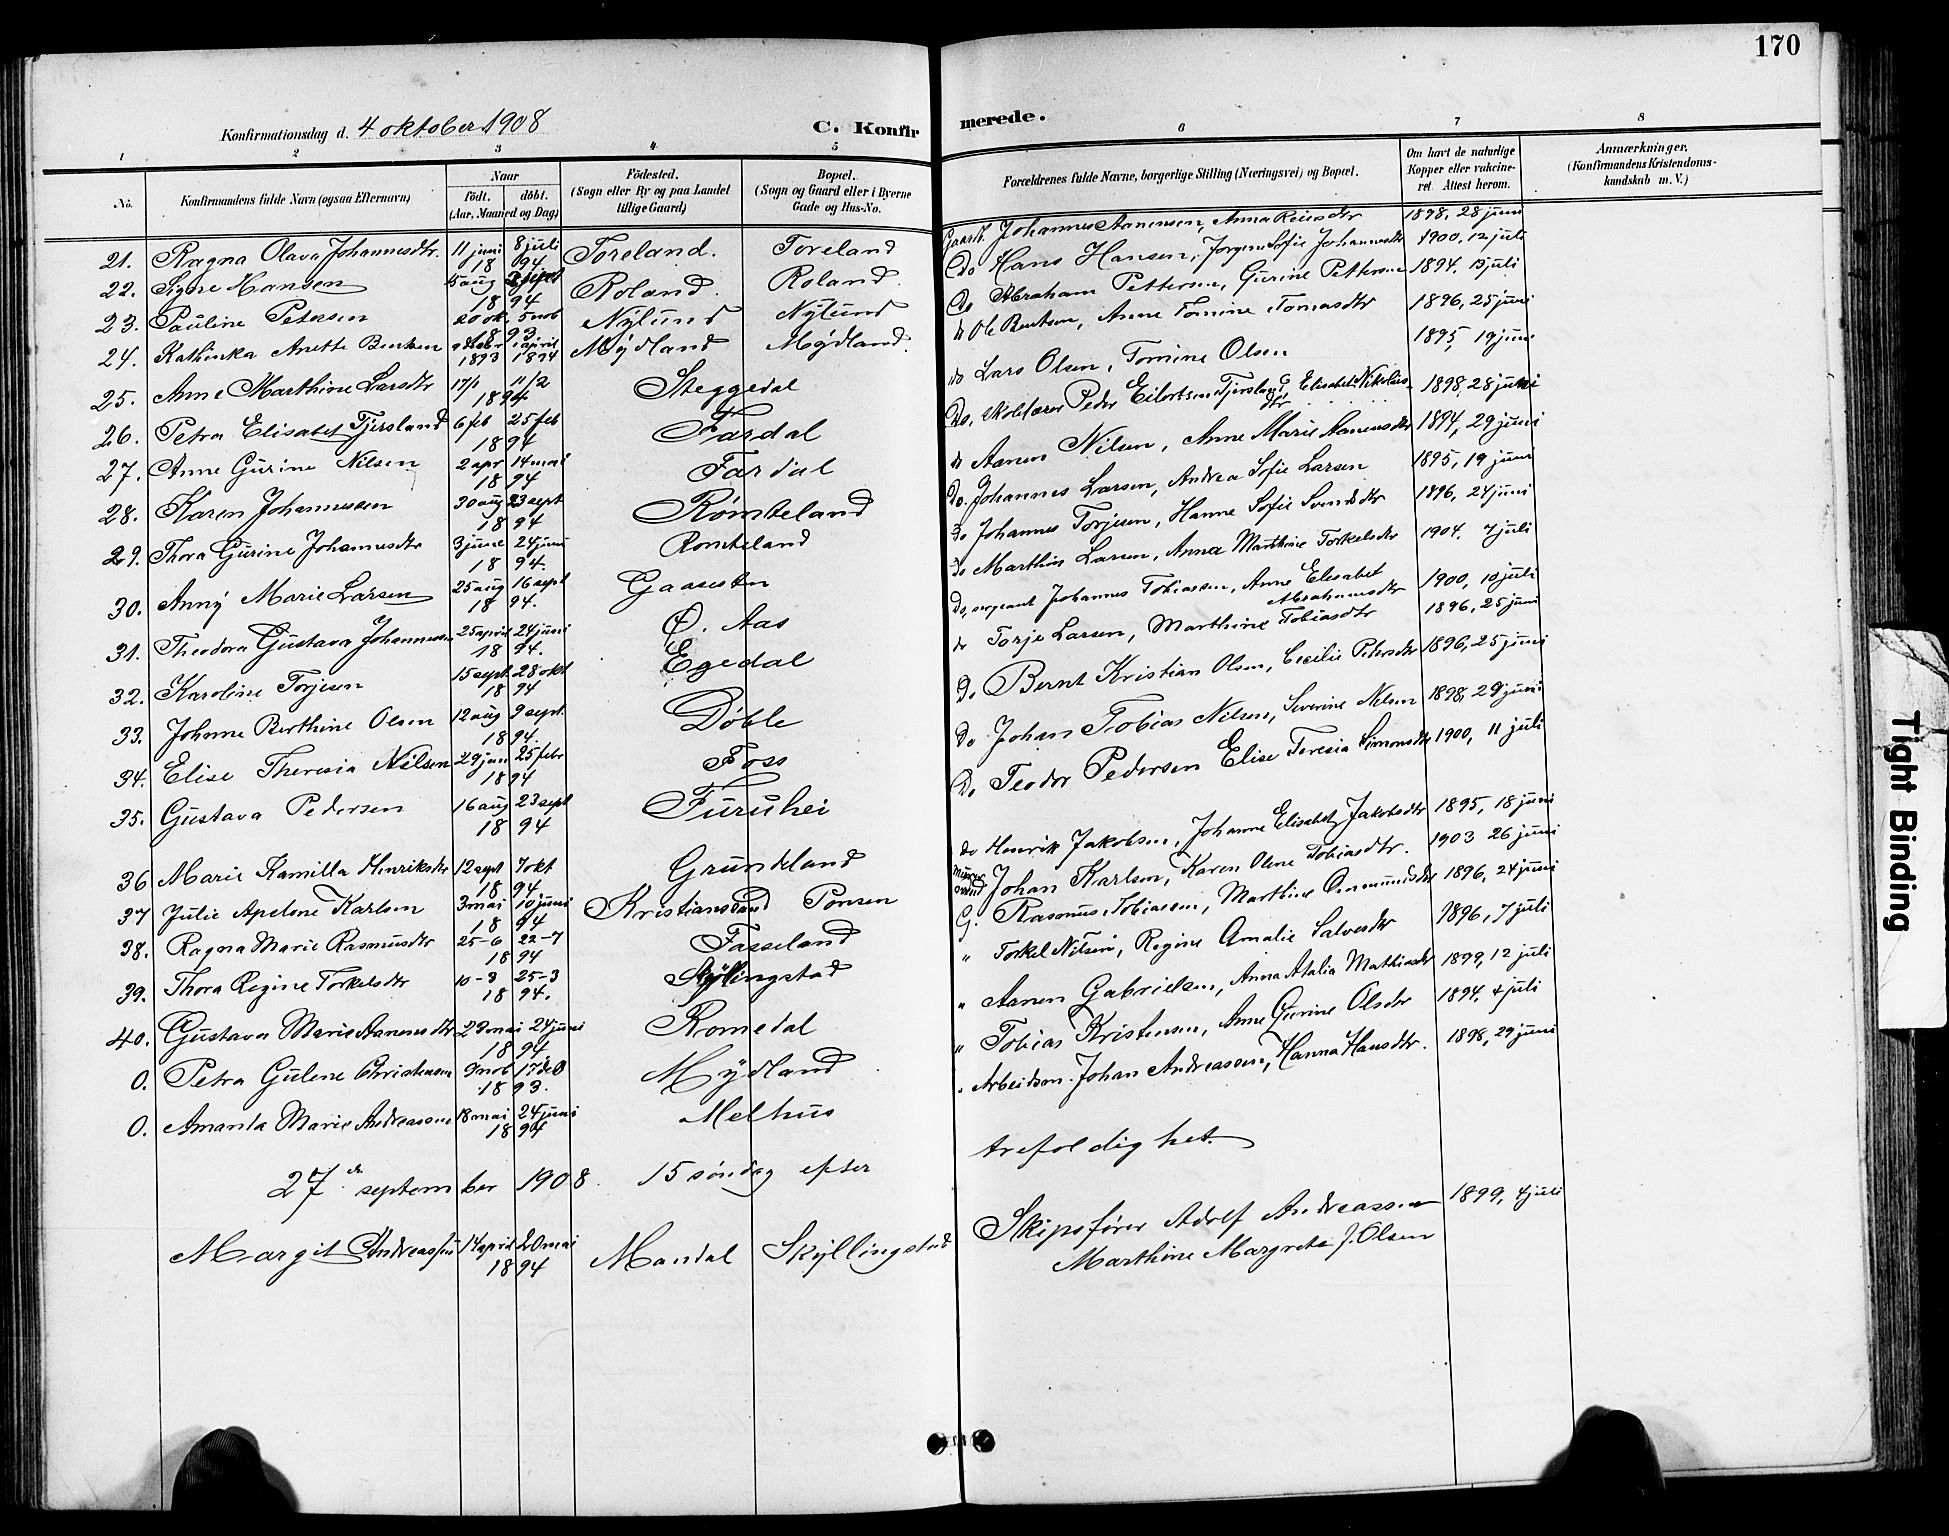 170
Konfirmationsdag d. 4 oktober 1908
C. Konfirmerede.
1 2 3 4 5 6 7 8
No. Konfirmandens fulde Navn (ogsaa Efternavn) Naar födt. döbt. (Aar, Maaned og Dag) Födested. (Sogn eller By og paa Landet tillige Gaard) Bopæl. (Sogn og Gaard eller i Byerne Gade og Hus-No. Forældrenes fulde Navne, borgerlige Stilling (Næringsvei) og Bopæl. Om havt de naturlige Kopper eller vakcineret. Attest herom. Anmærkninger. (Konfirmandens Kristendomskundskab m. V.)
21. Ragna Olava Johannesdtr. 11 juni 8 juli 1894 Toreland. Toreland Gaardb. Johannes Aanensen, Anna Reiersdtr 1898, 28 juni
22. Signe Hansen 5 aug 2 sept 1894 Roland. Roland. Do Hans Hansen, Jorgine Sofie Johannesdtr 1900, 12 juli
23. Pauline Petersen 20 ok. 5 nob 1893 Nylund Nylund Do Abraham Pettersen, Gurine Pettersen 1894. 13 juli
24. Kathinka Anette Bentsen april 1893 1894 Mydland Mydland. do Ole Bentsen, Anne Tomine Tomasdtr 1896, 25 juni
25. Anne Marthine Larsdtr 17/1 11/2 1894 Steggedal do Lars Olsen, Tomine Olsen 1895, 19 juni
26. Petra Elisabet Tjersland 6 feb 25 feb 1894 Fardal Do, skolelærer Peder Eilertsen Tjersland, Elisabet Nikolusdtr 1898, 28 juni
27. Anne Gurine Nilsen 2 apr 14 mai 1894 Fardal do Aanen Nilsen, Anne Marie Aanensdtr 1894, 29 juni
28. Karen Johannesen 30 aug 23 sept 1894 Rømteland Do. Johannes Larsen, Andrea Sofie Larsen 1895, 19 juni
29. Thora Gurine Johannesdtr 3 june 24 juni 1894. Romteland Do Johannes Torjesen, Hanne Sofie Svendsdtr 1896, 24 juni
30. Anny Marie Larsen 25 aug 16 sept 1894. Gaasesten do Marthin Larsen, Anna Marthine Torkelsdtr 1904. 7 juli
31. Theodora Gustava Johannessen 25 april 24 juni 1894. Ø. Aas Do, sergeant Johannes Tobiassen, Anne Elisabet Abrahamsdtr 1900, 10 juli
32. Karoline Torjesen 15 sept. 28 okt 1894 Egedal do Torje Larsen, Marthine Tobiasdtr 1896, 25 juni
33. Johanne Berthine Olsen 12 aug 9 sept. 1894. Døble Do Bernt Kristian Olsen, Cecilie Petersdtr 1896, 25 juni
34. Elise Theresia Nilsen 29 jan 25 febr 1894 Foss Do Johan Tobias Nilsen, Severine Nilsen 1898, 29 juni
35. Gustava Pedersen 16 aug 23 sept 1894 Furuhei Do Teodor Pedersen Elise Teresia Simonsdtr 1900, 11 juli
36 Marie Kamilla Henriksdtr 12 sept 7 okt 1894 Grundeland do Henrik Jakobsen, Johanne Elisabet Jakobsdtr 1895, 18 juni
37 Julie Apelone Karlsen 3 mai 10 juni 1894 Kristianssand Ponsen Johan Karlsen, Karen Olene Tobiasdtr. 1903 26 juni
38. Ragna Marie Rasmusdtr 25-6 22-7 1894 Fasseland G. Rasmus Tobiassen, Marthine Osmundsdtr 1896, 24 juni
39. Thora Regine Torkelsdtr 10-3 25-3 1894. Skyllingstad " Torkel Nilsen, Regine Amalie Salvesdtr 1896, 7 juli
40. Gustava Marie Aanensdtr 23 mai 24 juni 1894 Romedal " Aanen Gabrielsen, Anna Atalia Mathiasdtr 1899, 12 juli
0. Petra Gulene Christensen 9 nob 17 de 1893. Mydland " Tobias Kristensen, Anne Gurine Olsdtr 1894. 4 juli
0. Amanda Marie Andreassen 18 mai 24 juni 1894 Melhus " Arbeidsm. Johan Andreassen, Hanna Hansdtr. 1898, 29 juni
27de september 1908. 15 søndag efter trefoldighet.
Margit Andreassen 14 april 20 mai 1894 Mandal Skyllingstad Skipsfører Adolf Andreassen 1899, 4 juli
Marthine Margrete J. Olsen
Tight Binding